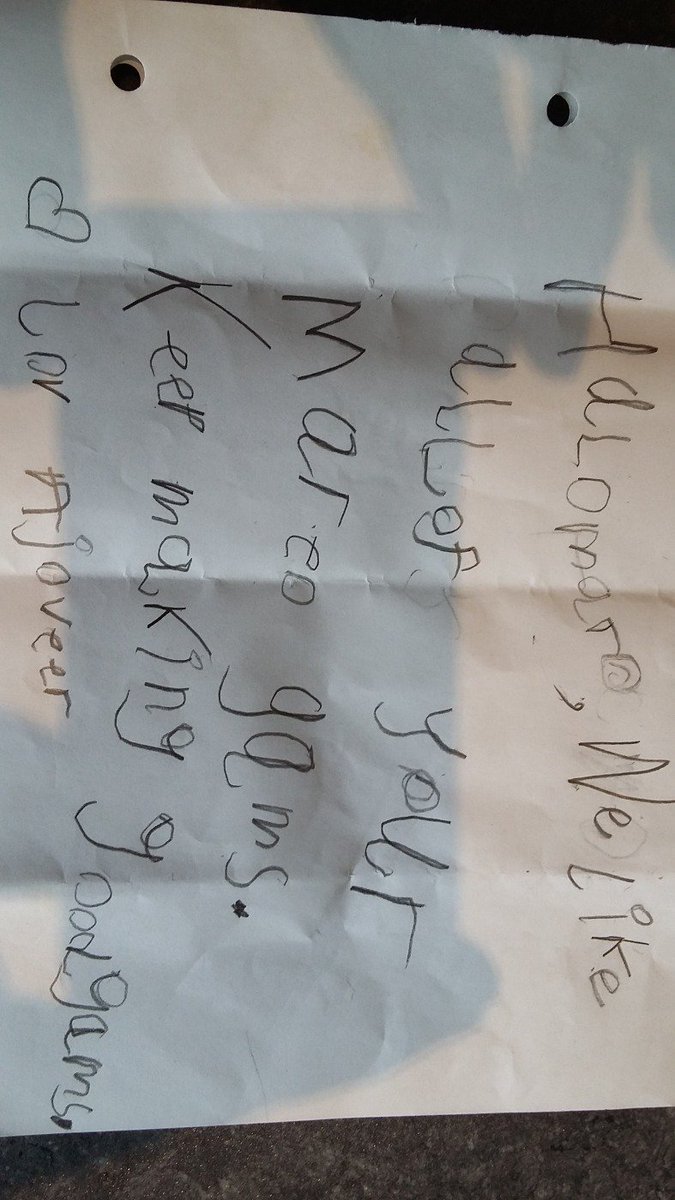 HaLomar@, We Like
aLLof your
Mareo gams.
Keep making good gams.
Lov Ajoveer